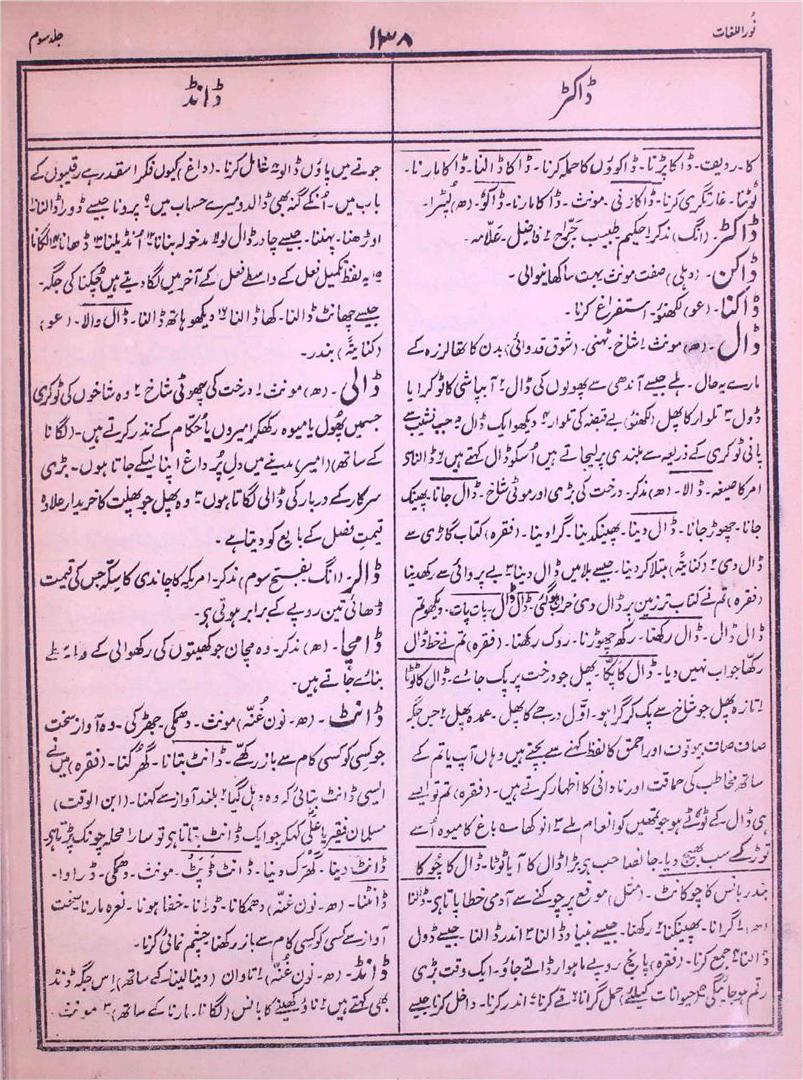 نُور اللغات
۱۳۸
جلد سوم
ڈاکٹر
ڈانڈ
کا۔ ردیف۔ ڈاکا پڑنا۔ ڈاکوؤں کا حملہ کرنا۔ ڈاکا ڈالنا۔ ڈاکا مارنا۔
لُوٹنا۔ غارتگری کرنا۔ ڈاکا زنی۔ مونث۔ ڈاکا مارنا۔ ڈاکو۔ (ھ) لُٹیرا۔
ڈاکٹر۔ (انگ) مذکر ۱ حکیم طبیب جَرّاح ۲ فاضل۔ علّامہ۔
ڈاکن۔ (دہلی) صفت مونث بہت سا کھانیوالی۔
ڈاکنا۔ (عو) لکھنؤ۔ استفراغ کرنا۔
ڈال۔ (ھ) مونث ۱ شاخ۔ ٹہنی۔ (شوق قدوائی) بدن کا تھا لرزہ کے
مارے یہ حال۔ ہلے جیسے آندھی سے پھولوں کی ڈال ۲ آبپاشی کا ٹوکرا یا
ڈول ۳ تلوار کا پھل (لکھنؤ) بے قبضہ کی تلوار ۴ دیکھو ایک ڈال ۵ جب نشیب سے
پانی ٹوکری کے ذریعہ سے بلندی پر لیجاتے ہیں اُسکو ڈال کہتے ہیں ۶ ڈالنا کا
امر کا صیغہ۔ ڈالا۔ (ھ) مذکر۔ درخت کی بڑی اور موٹی شاخ۔ ڈال جانا۔ پھینک
جانا۔ چھوڑ جانا۔ ڈال دینا۔ پھینکدینا۔ گرا دینا۔ (فقرہ) کتاب گاڑی سے
ڈال دی ۲ (کنایۃً) مبتلا کر دینا۔ جیسے بلا میں ڈال دینا ۳ بے پروائی سے رکھدینا
(فقرہ) تم نے کتاب تر زمین پر ڈال دی خراب ہوگئی۔ ڈال ڈال پات پات۔ دیکھو تم
ڈال ڈال۔ ڈال رکھنا۔ رکھ چھوڑنا۔ روک رکھنا۔ (فقرہ) تم نے خط ڈال
رکھا جواب نہیں دیا۔ ڈال کا پکا۔ پھل جو درخت پر پک جائے۔ ڈال کا ٹوٹا
۱ تازہ پھل جو شاخ سے پک کر گرا ہو۔ اوّل درجے کا پھل۔ عمدہ پھل ۲ جس جگہ
صاف صاف بیوقوف اور احمق کا لفظ کہنے سے بچتے ہیں وہاں آپ یا تم کے
ساتھ مخاطب کی حماقت اور نادانی کا اظہار کرتے ہیں۔ (فقرہ) تم تو ایسے
ہی ڈال کے ٹوٹے ہو جو تمھیں کو انعام ملے ۳ انوکھا ؎ باغ کا میوہ اُسے
توڑ کے سب بھیج دیا۔ جانصاحب بڑا ڈال کا آیا ٹوٹا۔ ڈال کا چوکا
بندر بانس کا چوکا نٹ۔ (مثل) موقع پر چوکنے سے آدمی خطا پاتا ہے۔ ڈالنا
(ھ) ۱ گرانا۔ پھینکنا ۲ رکھنا۔ جیسے بنیاد ڈالنا ۳ اندر ڈالنا۔ جیسے ڈول
ڈالنا ۴ جمع کرنا۔ (فقرہ) پانچ روپے ماہوار ڈالتے جاؤ۔ ایک وقت بڑی
رقم ہو جائیگی ۵ حیوانات کیلئے) حمل گرانا ۶ قے کرنا ۷ اندر کرنا۔ داخل کرنا جیسے
جوتے میں پاؤں ڈالو ۸ شامل کرنا۔ (داغ) کیوں فکر اسقدر ہے رقیبوں کے
باب میں۔ اُنکے گنہ بھی ڈالدو میرے حساب میں ۹ پرونا جیسے ڈورا ڈالنا ۱۰
اوڑھنا۔ پہننا۔ جیسے چادر ڈال لو ۱۱ مدخولہ بنانا ۱۲ اُنڈیلنا ۱۳ ڈھانا ۱۴ لگانا
۱۵ یہ لفظ تکمیل فعل کے واسطے فعل کے آخر میں لگا دیتے ہیں چُکنا کی جگہ۔
جیسے چھانٹ ڈالنا۔ کھا ڈالنا ۱۶ دیکھو ہاتھ ڈالنا۔ ڈال والا۔ (عو)
(کنایۃً) بندر۔
ڈالی۔ (ھ) مونث ۱ درخت کی چھوٹی شاخ ۲ وہ شاخوں کی ٹوکری
جسمیں پھول یا میوہ رکھکر امیروں یا حُکّام کے نذر کرتے ہیں۔ (لگانا
کے ساتھ) (امیر) مدینے میں دلِ پُر داغ اپنا لیکے جاتا ہوں۔ بڑی
سرکار کے دربار کی ڈالی لگاتا ہوں ۳ وہ پھل جو پھلت کا خریدار علاوہ
قیمتِ فصل کے بایع کو دیتا ہے۔
ڈالر۔ (انگ بفتح سوم) مذکر۔ امریکہ کا چاندی کا سکہ جس کی قیمت
ڈھائی تین روپے کے برابر ہوتی ہے۔
ڈامچا۔ (ھ) مذکر۔ وہ مچان جو کھیتوں کی رکھوالی کے واسطے
بنائے جاتے ہیں۔
ڈانٹ۔ (ھ۔ نون غُنّہ) مونث۔ دھمکی جھڑکی۔ وہ آوازِ سخت
جو کسی کو کسی کام سے باز رکھے۔ ڈانٹ بتانا۔ گھُرکنا۔ (فقرہ) میں نے
ایسی ڈانٹ بتائی کہ وہ دہل گیا ۲ بلند آواز سے کہنا۔ (ابن الوقت)
مسلمان فقیر یا علیؓ کہکر جو ایک ڈانٹ بتاتا ہے تو سارا محلہ چونک پڑتا ہے
ڈانٹ دینا۔ گھُرک دینا۔ ڈانٹ ڈپٹ۔ مونث۔ دھمکی۔ ڈراوا۔
ڈانٹنا۔ (ھ۔ نون غنّہ) دھمکانا۔ ڈرانا۔ خفا ہونا۔ نعرہ مارنا۔ سخت
آواز سے کسی کو کسی کام سے باز رکھنا۔ چشم نمائی کرنا۔
ڈانڈ۔ (ھ۔ نون غُنّہ) ۱ تاوان (دینا لینا کے ساتھ) اِس جگہ ڈنڈ
بھی کہتے ہیں ۲ ناؤ کھینے کا بانس (لگانا۔ مارنا کے ساتھ) ۳ مونث۔